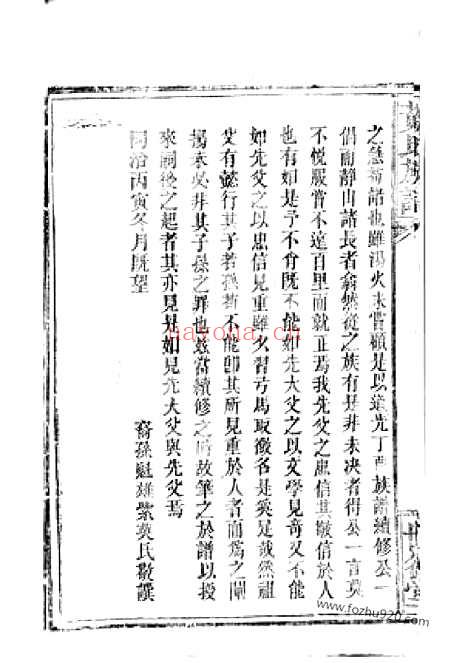 之急者諾也雖湯火未嘗顧是以道光丁酉族譜續修公一
倡而靜山諸長者翕然從之族有是非未决者得公一言莫
不悅服皆不遠百里而就正焉我先父之忠信其敬信於人
也有如是予不肖既不能如先大父之以文學見奇又不能
如先父之以忠信見重雖久習弓馬取微名是奚足哉然祖
父有懿行其子若孫苟不能即其所見重於人者而爲之闡
揚表吳非其子孫之罪也玆當續修之時故筆之於譜以授
來嗣後之起者其亦見是如見先大父與先父焉
同治丙寅冬月既望
裔孫魁雄紫英氏敬譔
氏族譜
堂
nayona.cn
www.fozhu920.com